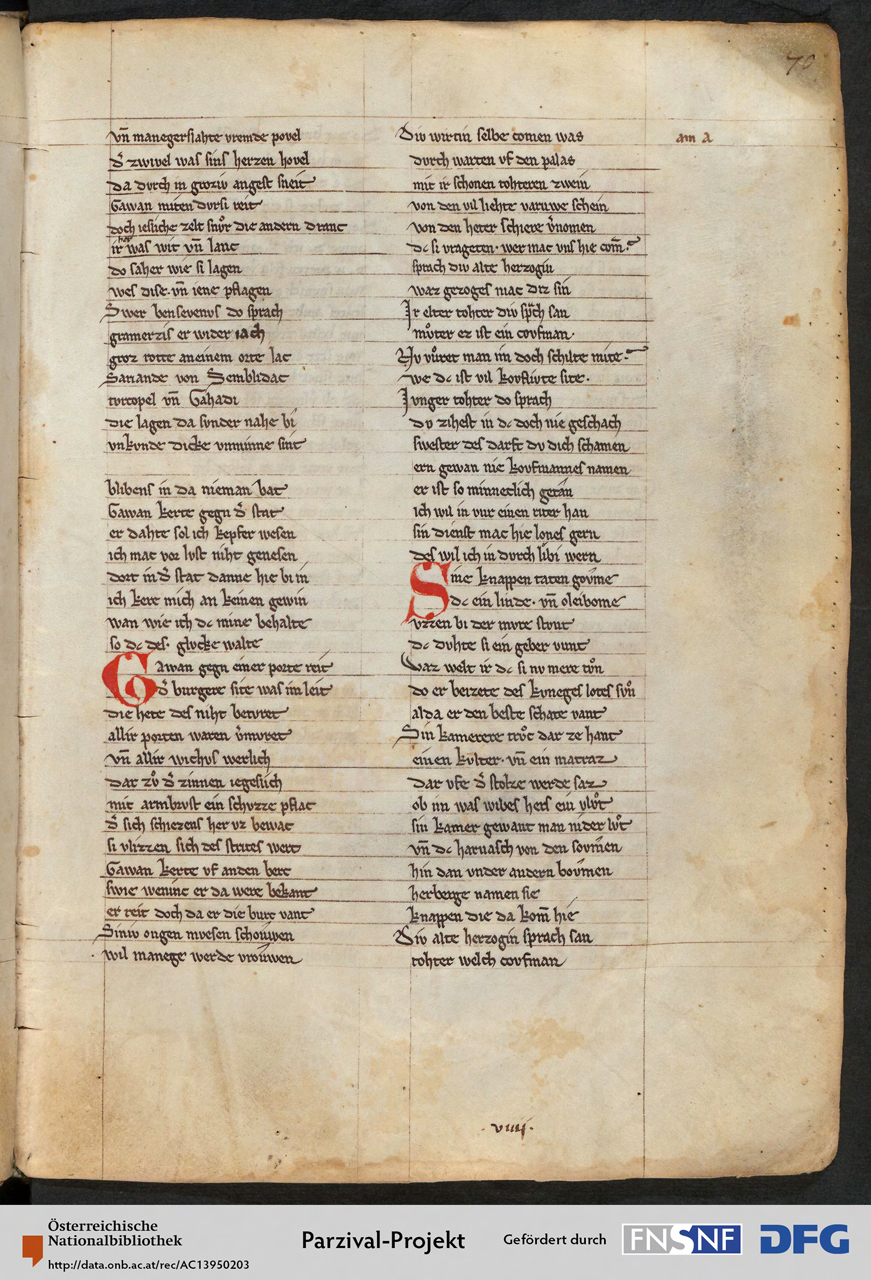 70
vñ manegerslahte vremde povel
d͛ zwivel was sins herzen hovel
da dvrch in groziv angest sneit
Gawan miten dvrsi reit
doch iesliche zelt snvͦr die andern dranc
ir her was wit vñ lanc
do saher wie si lagen
wes dise. vñ iene pflagen
Swer bensevenvs do sprach
gramerzis er wider iach
groz rotte aneinem orte lac
Sariande von Semblidac
tvrcopel vñ Gahadi
die lagen da svnder nahe bi
vnkvnde dicke vnminne sint
blibens in da nieman bat
Gawan kerte gegn d͛ stat
er dahte sol ich kepfer wesen
ich mac vor lvst niht genesen
dort in d͛ stat danne hie bi in
ich kere mich an keinen gewin
wan wie ich dc mine behalte
so dc des. glvcke walte
Gawan gegn einer porte reit
d͛ burgere site was im leit
die hete des niht betvret
allir porten waren v͛mvret
vñ allir wichvs werlich
dar zvͦ d͛ zinnen iegeslich
mit armbrvst ein schvzze pflac
d͛ sich schiezens her vz bewac
si vlizzen sich des strites wert
Gawan kerte vf anden berc
swie weninc er da were bekant
er reit doch da er die burc vant
Siniv ougen mvesen schoůwen
vil manege werde vroůwen
Div wirtin selbe comen was
dvrch warten vf den palas
mit ir schonen tohteren zwein
von den vil liehte varuwe schein
von den heter schiere v͛nomen
dc si vrageten. wer mac vns hie com̄
sprach div alte herzogin
waz gezoges mac diz sin
Ir elter tohter div sp̄ch san
mvͦter ez ist ein covfman.
Nv vvͦret man im doch schilte mite
we dc ist vil kovflivte site.
Ivnger tohter do sprach
dv zihest in dc doch nie geschach
swester des darft dv dich schamen
ern gewan nie kovfmannes namen
er ist so minnerlich getan
ich wil in vur einen riter han
sin dienst mac hie lones gern
des wil ich in dvrch libi wern
Sine knappen taten goůme
dc ein linde. vñ oleibome
vzzen bi der mvre stvnt
dc dvhte si ein geber vunt
Waz welt ir dc si nv mere tvͦn
do er beizete des kvneges lotes svͦn
alda er den beste schate vant
Sin kamerere trvͦc dar ze hant
einen kvlter. vñ ein matraz
dar vfe d͛ stolze werde saz
ob im was wibes hers ein vlvͦt
sin kamer gewant man nider lvͦt
vñ dc harnasch von den sovmen
hin dan vnder andern bovmen
herberge namen sie
knappen die da kom̄ hie
Div alte herzogin sprach san
tohter welch covfman
am a
. viiij .
Österreichische
Nationalbibliothek
http://data.onb.ac.at/rec/AC13950203
Parzival-Projekt
Gefördert durch
FNSNF
DFG